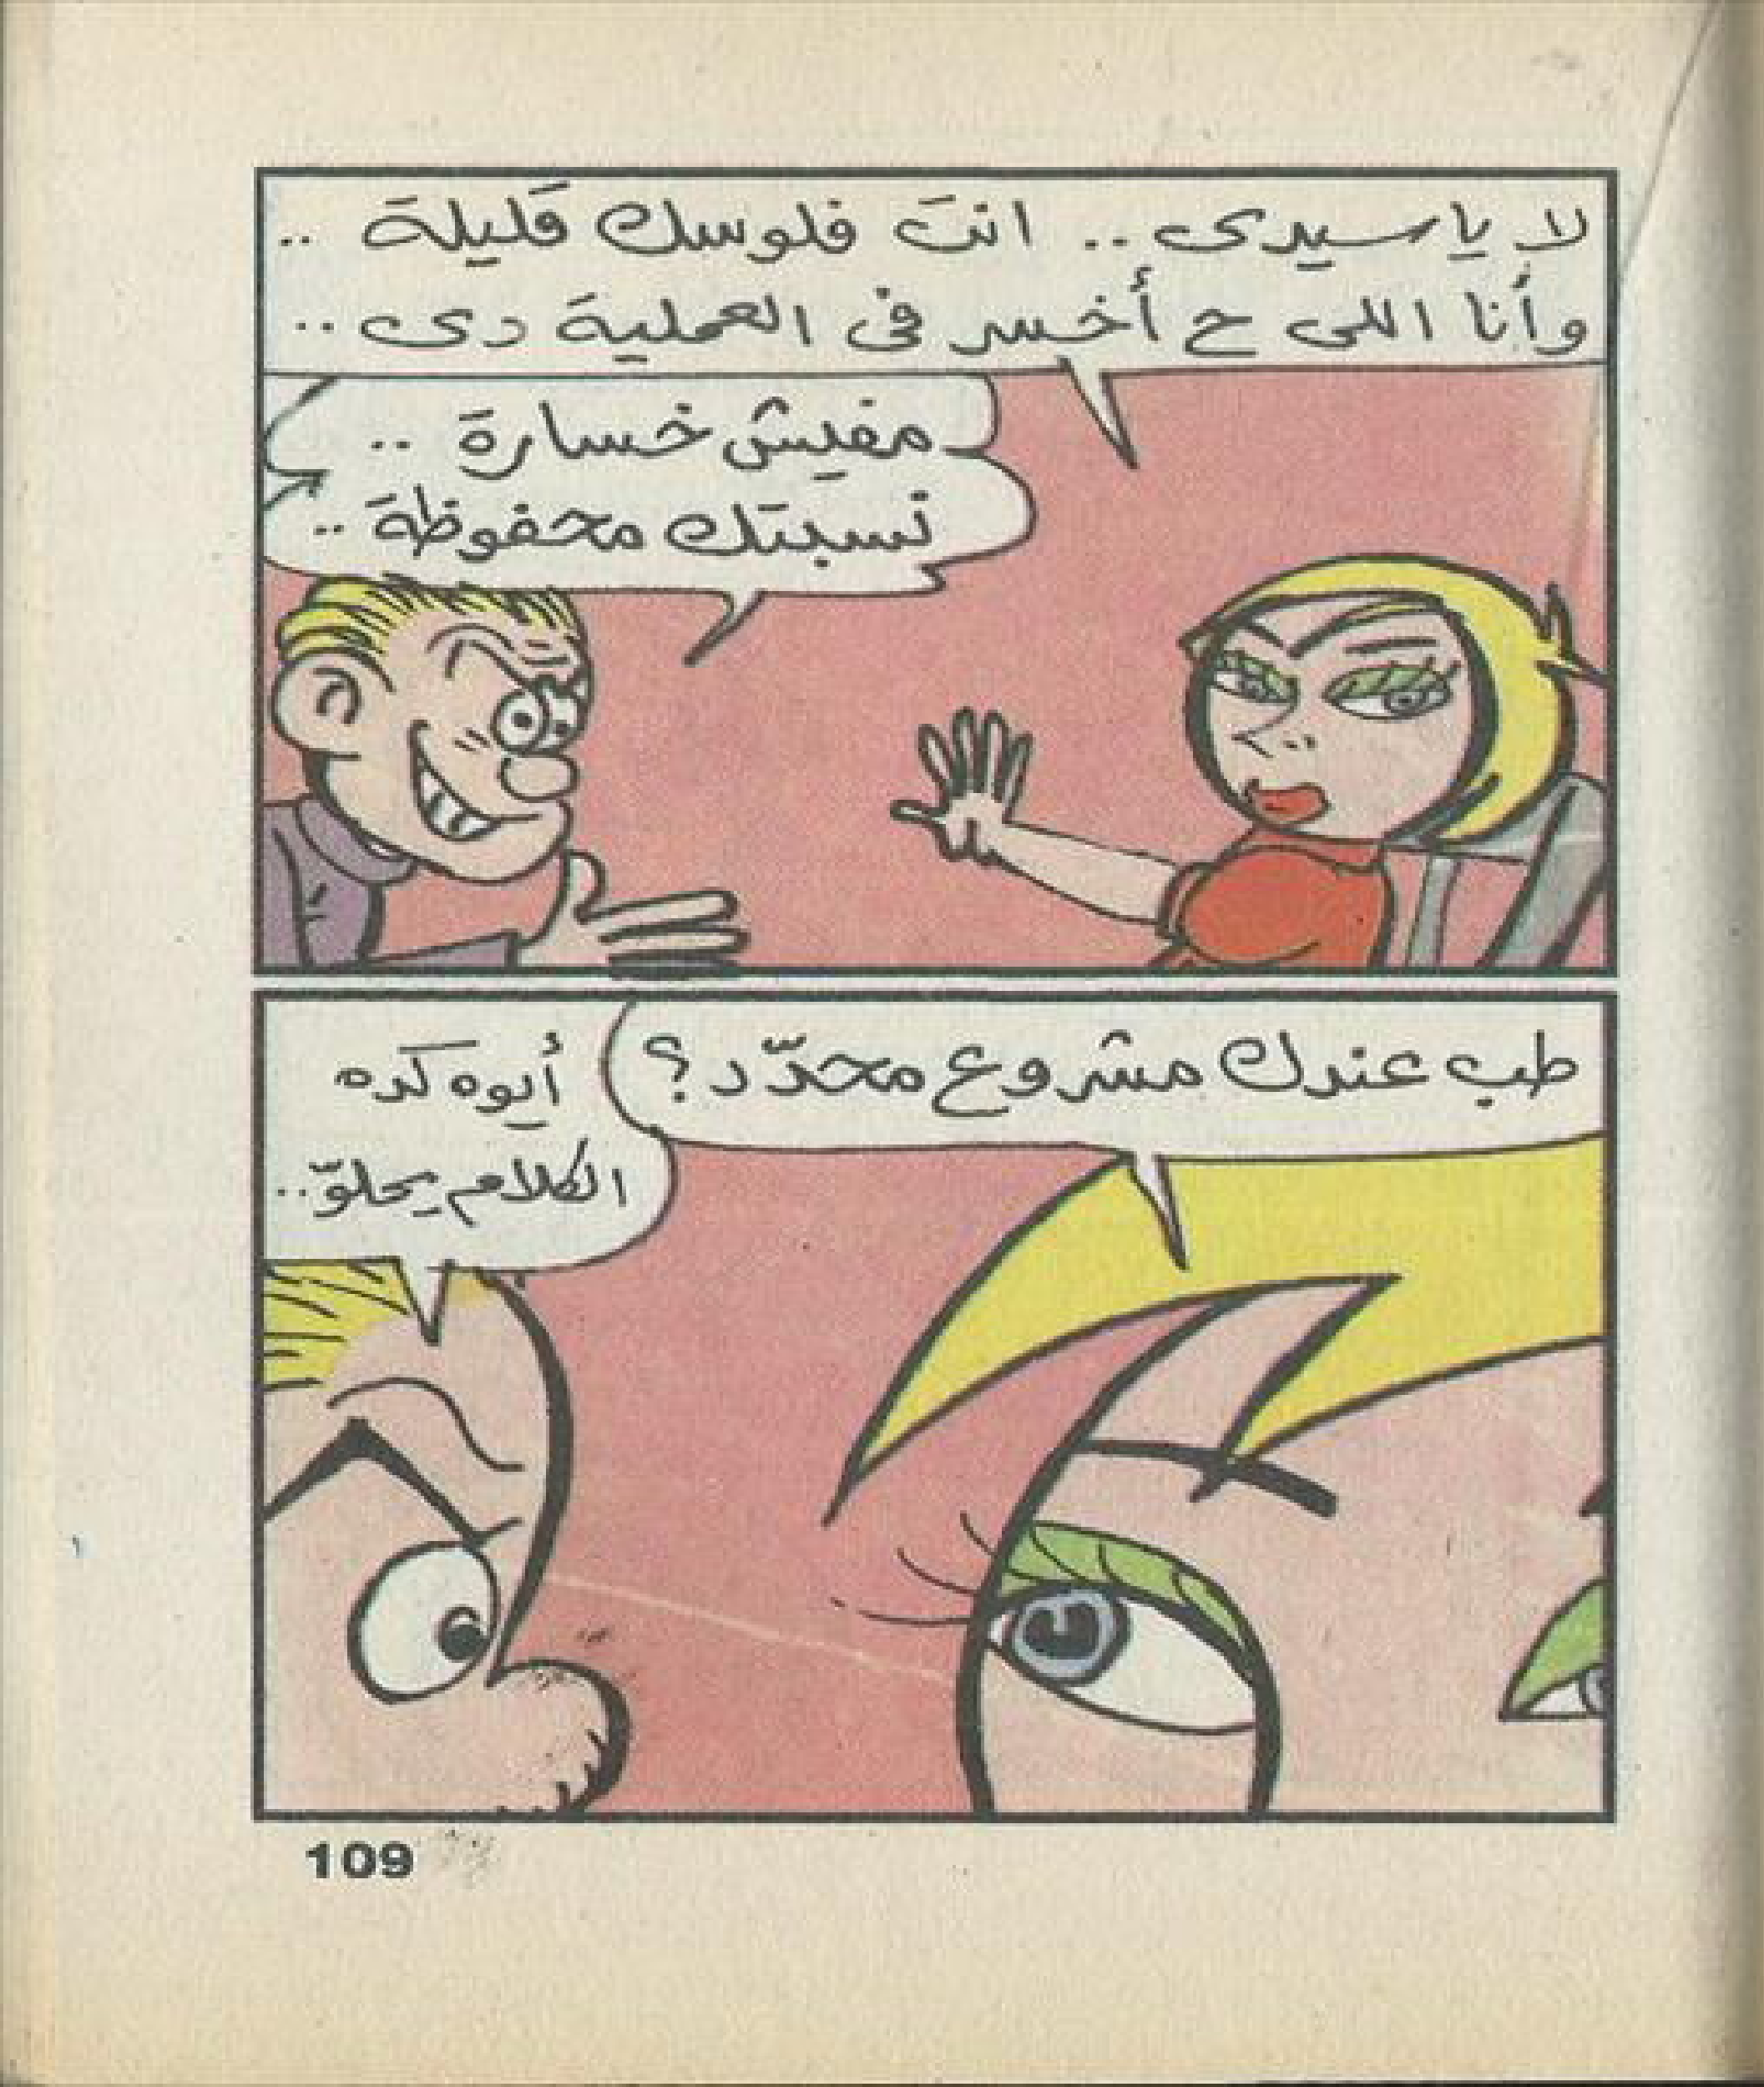 لا يا سيدى .. انتَ فلوسك قَليلة ..
وأنا اللى ح أخسر فى العملية دى ..
مفيش خسارة ..
نسبتك محفوظة ..
طب عندك مشروع محدّد؟
أيوه كده
الكلام يحلوّ ..
109